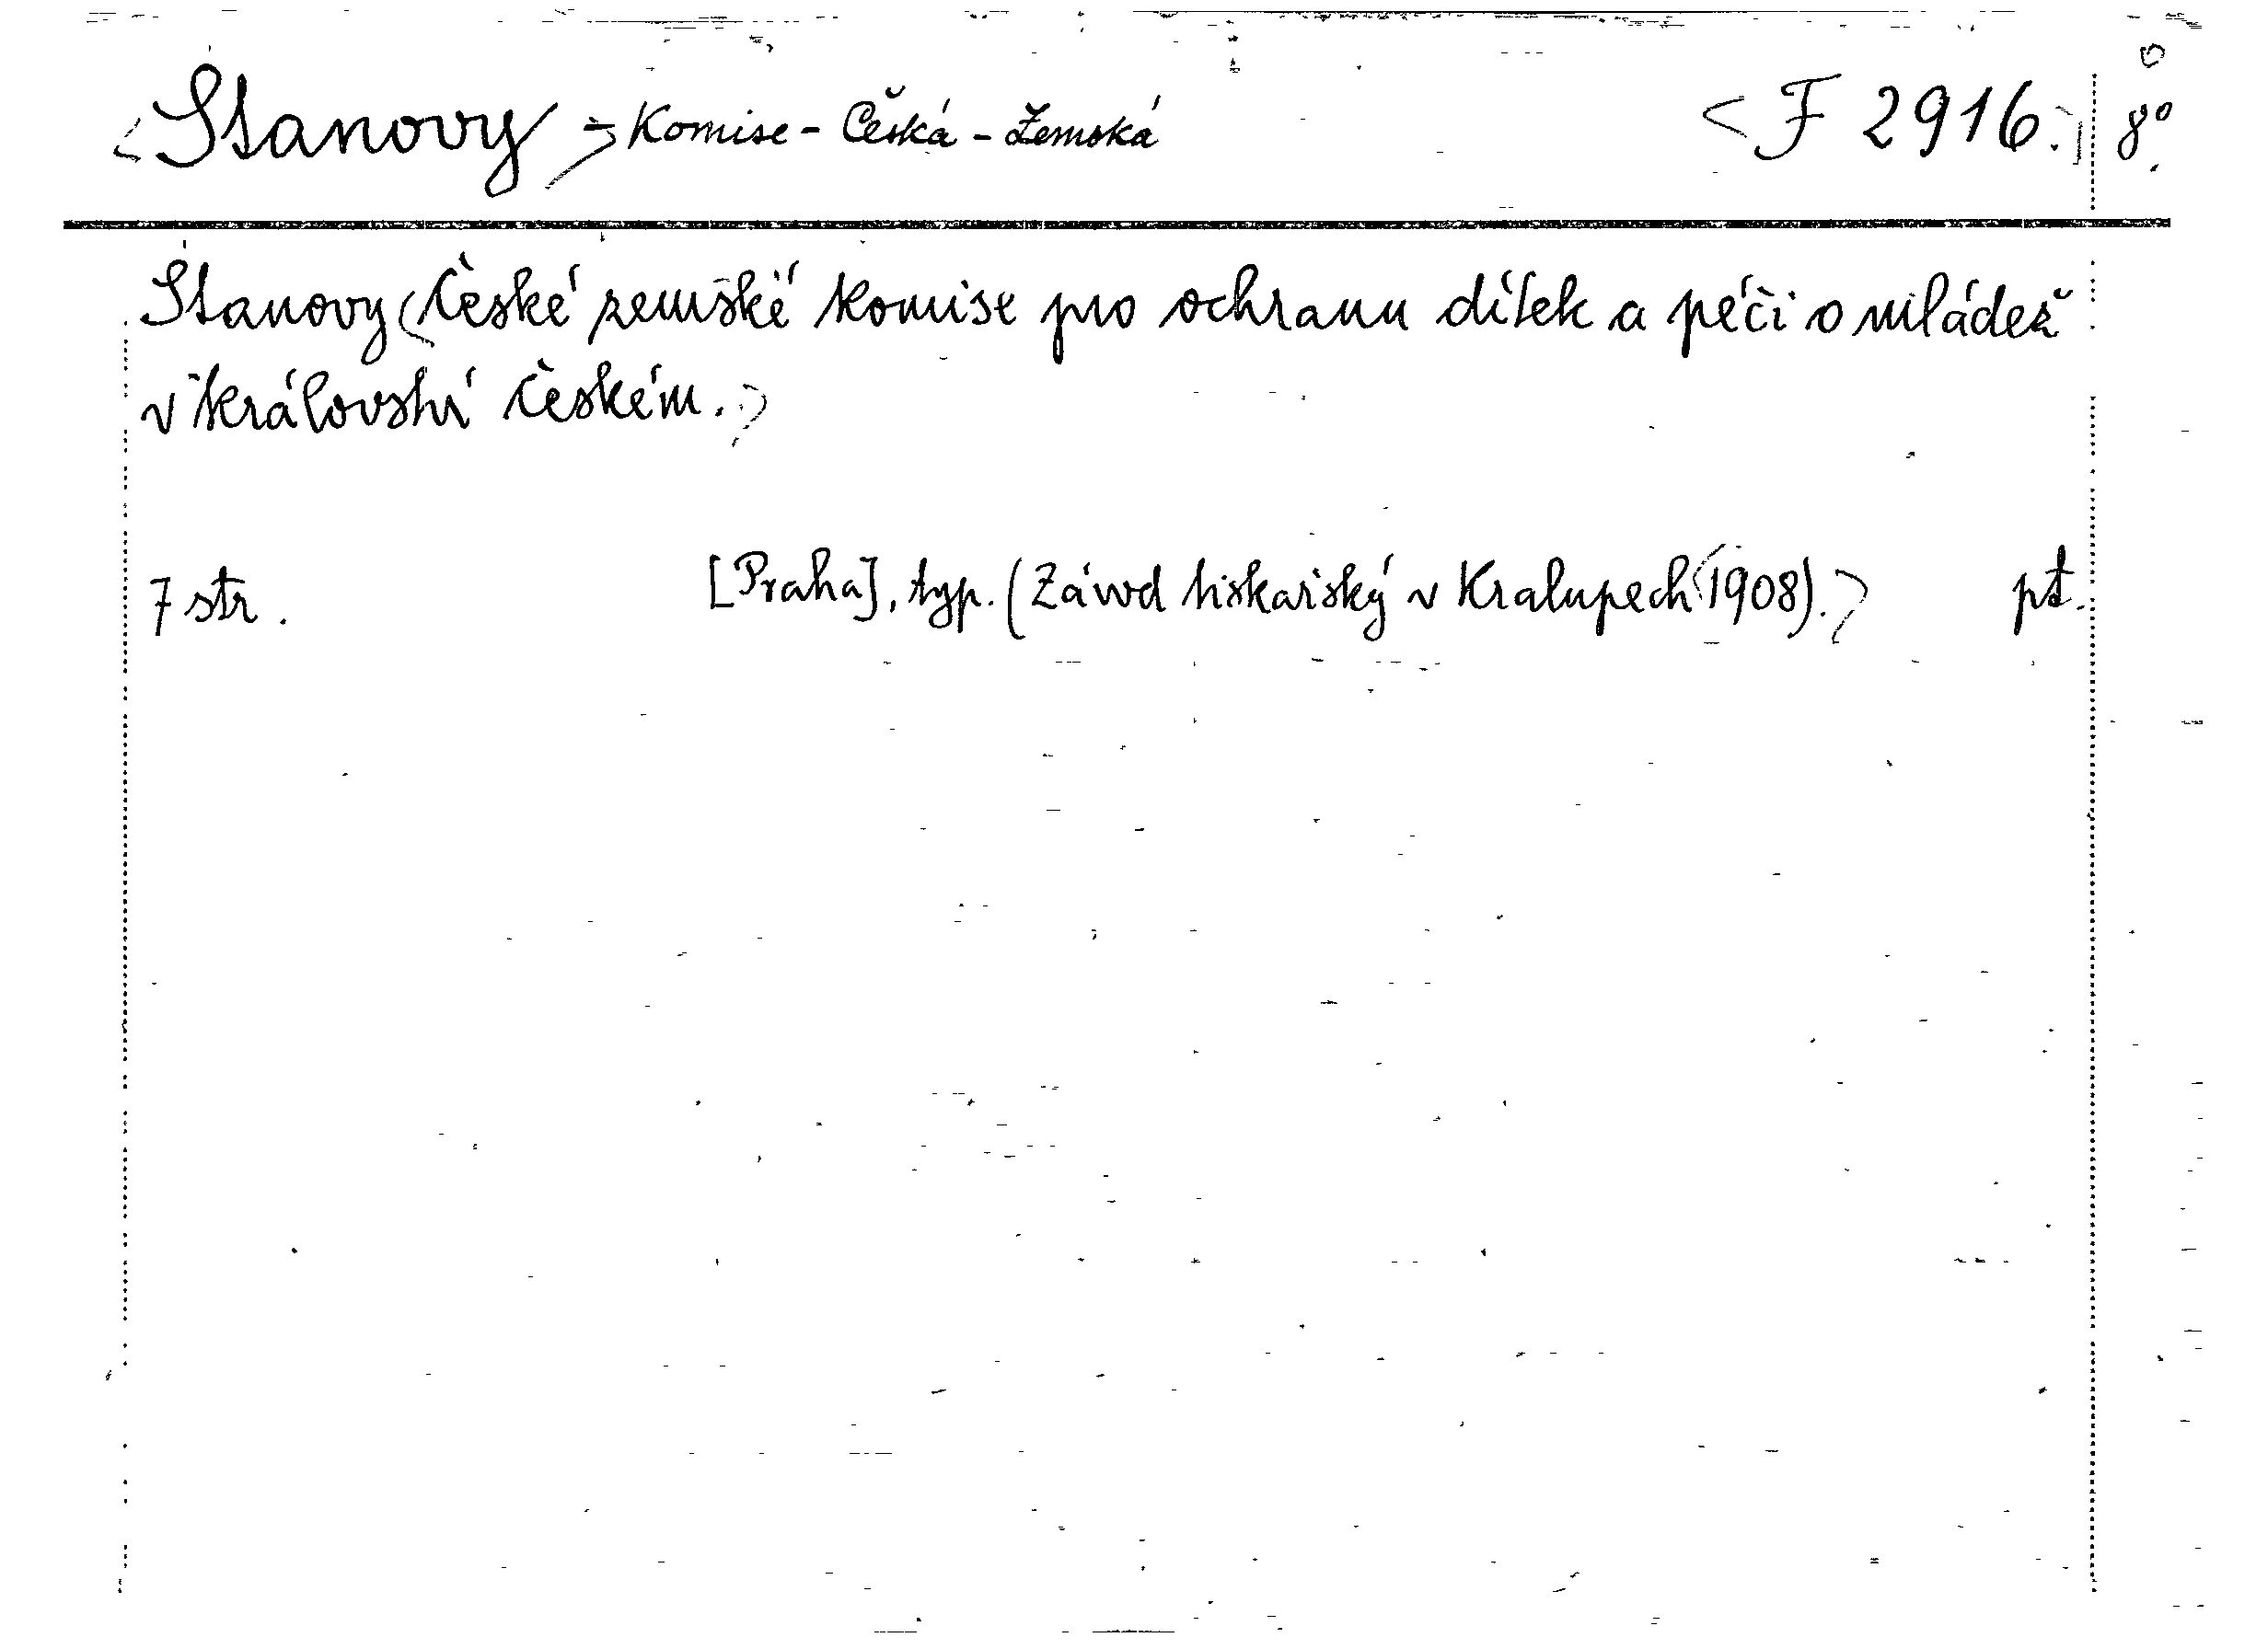 Stanovy Komise - Česká - Zemská F 2916. 8°
Stanovy České zemské komise pro ochranu dítek a péči o mládež
v království českém.
7 str. [Praha], typ. (Závod tiskařský v Kralupech 1908). př.